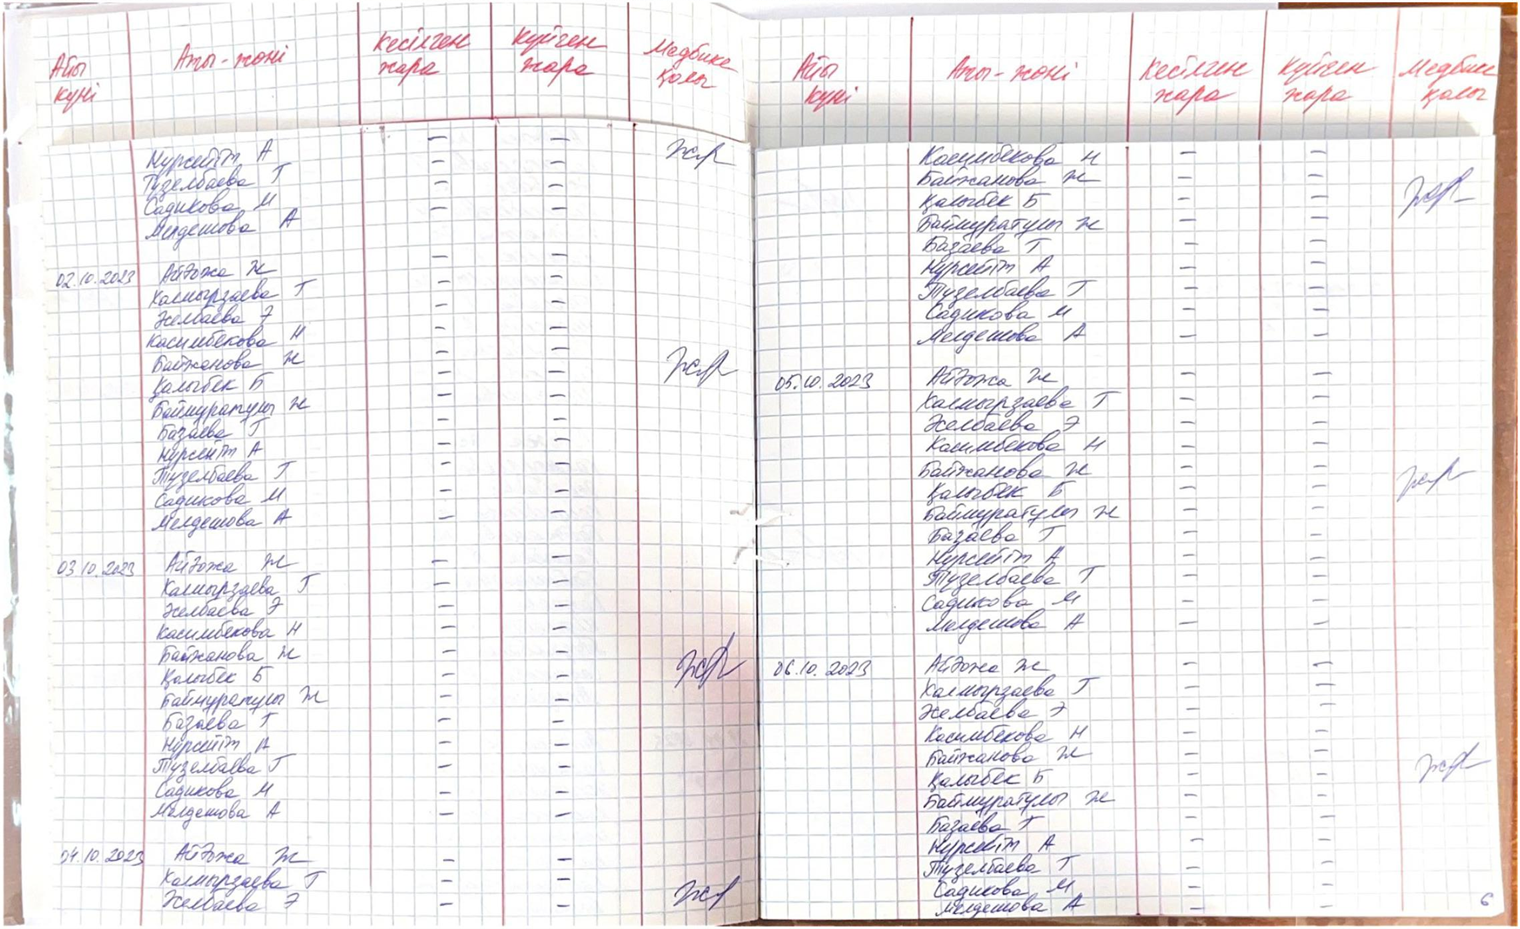 Айы күні Аты-жөні Кесілген жара Күйген жара Медбике қолы
Нурсейіт А – –
Тузелбаева Т – –
Садикова М – –
Мелдешова А – –
02.10.2023 Айдожа Ж – –
Калмырзаева Т – –
Желбаева Э – –
Касимбекова Н – –
Байжанова Ж – –
Қалыбек Б – –
Баймуратулы Ж – –
Базаева Т – –
Нурсейіт А – –
Тузелбаева Т – –
Садикова М – –
Мелдешова А – –
03.10.2023 Айдожа Ж – –
Калмырзаева Т – –
Желбаева Э – –
Касимбекова Н – –
Байжанова Ж – –
Қалыбек Б – –
Баймуратулы Ж – –
Базаева Т – –
Нурсейіт А – –
Тузелбаева Т – –
Садикова М – –
Мелдешова А – –
04.10.2023 Айдожа Ж – –
Калмырзаева Т – –
Желбаева Э – –
Айы күні Аты-жөні Кесілген жара Күйген жара Медбике қолы
Касимбекова Н – –
Байжанова Ж – –
Қалыбек Б – –
Баймуратулы Ж – –
Базаева Т – –
Нурсейіт А – –
Тузелбаева Т – –
Садикова М – –
Мелдешова А – –
05.10.2023 Айдожа Ж – –
Калмырзаева Т – –
Желбаева Э – –
Касимбекова Н – –
Байжанова Ж – –
Қалыбек Б – –
Баймуратулы Ж – –
Базаева Т – –
Нурсейіт А – –
Тузелбаева Т – –
Садикова М – –
Мелдешова А – –
06.10.2023 Айдожа Ж – –
Калмырзаева Т – –
Желбаева Э – –
Касимбекова Н – –
Байжанова Ж – –
Қалыбек Б – –
Баймуратулы Ж – –
Базаева Т – –
Нурсейіт А – –
Тузелбаева Т – –
Садикова М – –
Мелдешова А – –
6